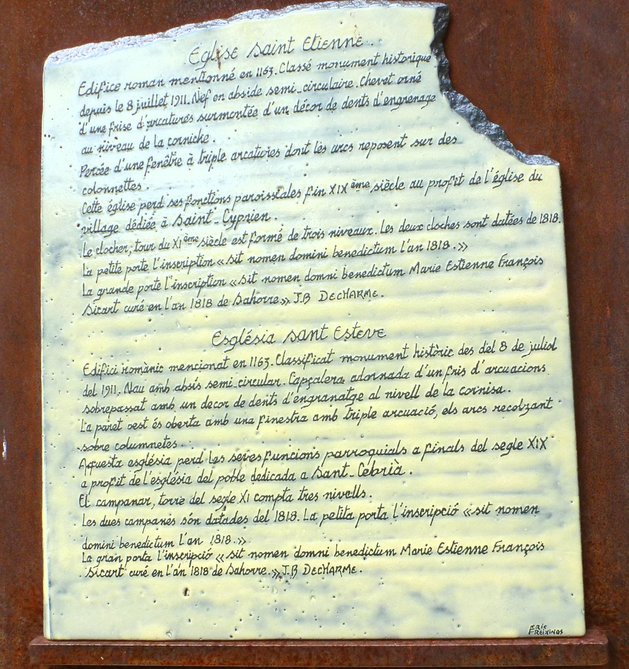 Eglise saint Etienne.
Edifice roman mentionné en 1163. Classé monument historique
depuis le 8 juillet 1911. Nef en abside semi-circulaire. Chevet orné
d'une frise d'arcatures surmontée d'un décor de dents d'engrenage
au niveau de la corniche.
Percée d'une fenêtre à triple arcatures dont les arcs reposent sur des
colonnettes.
Cette église perd ses fonctions paroissiales fin XIXème siècle au profit de l'église du
village dédiée à Saint-Cyprien.
Le clocher, tour du XIème siècle est formé de trois niveaux. Les deux cloches sont datées de 1818.
La petite porte l'inscription «sit nomen domini benedictum l'an 1818.»
La grande porte l'inscription «sit nomen domni benedictum Marie Estienne François
Sicart curé en l'an 1818 de Sahorre» J.B DECHARME.
Església sant Esteve
Edifici romànic mencionat en 1163. Classificat monument històric des del 8 de juliol
del 1911. Nau amb absis semi circular. Capçalera adornada d'un fris d'arcuacions
sobrepassat amb un decor de dents d'engranatge al nivell de la cornisa.
La paret oest és oberta amb una finestra amb triple arcuació, els arcs recolzant
sobre columnetes.
Aquesta església perd les seves funcions parroquials a finals del segle XIX
a profit de l'església del poble dedicada a Sant-Cebrià.
El campanar, torre del segle XI compta tres nivells.
Les dues campanes són datades del 1818. La petita porta l'inscripció «sit nomen
domini benedictum l'an 1818.»
La gran porta l'inscripció «sit nomen domni benedictum Marie Estienne François
Sicart curé en l'an 1818 de Sahorre.» J.B DECHARME.
ERIC
FREIXINOS